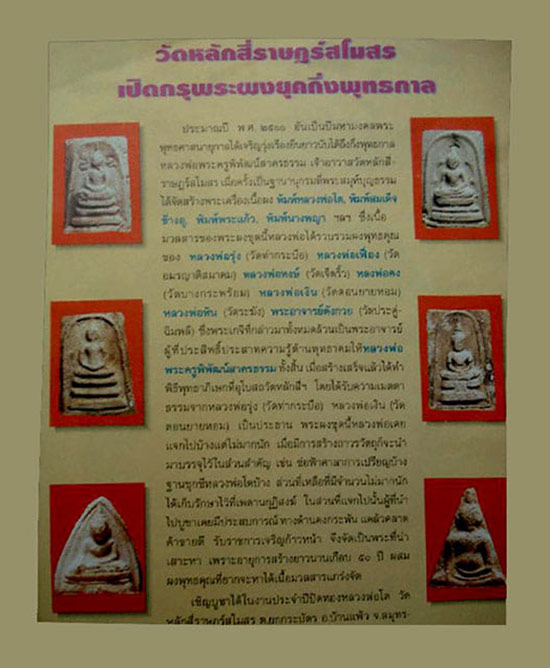 วัดหลักสี่ราษฎร์สโมสร
เปิดกรุพระผงยุคกึ่งพุทธกาล
ประมาณปี พ.ศ. ๒๕๐๐ อันเป็นปีมหามงคลพระ
พุทธศาสนายุกาลได้เจริญรุ่งเรืองยืนยาวนับได้ถึงกึ่งพุทธกาล
หลวงพ่อพระครูพิพัฒน์สาครธรรม เจ้าอาวาสวัดหลักสี่-
ราษฎร์สโมสร เมื่อครั้งเป็นฐานานุกรมที่พระสมุห์บุญธรรม
ได้จัดสร้างพระเครื่องเนื้อผง พิมพ์หลวงพ่อโต, พิมพ์สมเด็จ
ข้างอุ, พิมพ์พระแก้ว, พิมพ์นางพญา ฯลฯ ซึ่งเนื้อ
มวลสารของพระผงชุดนี้หลวงพ่อได้รวบรวมผงพุทธคุณ
ของ หลวงพ่อรุ่ง (วัดท่ากระบือ) หลวงพ่อเฟื่อง (วัด
อมรญาติสมาคม) หลวงพ่อหงษ์ (วัดเจ็ดริ้ว) หลงพ่อคง
(วัดบางกระพร้อม) หลวงพ่อเงิน (วัดดอนยายหอม)
หลวงพ่อหิน (วัดระฆัง) พระอาจารย์ตังกวย (วัดประดู่-
ฉิมพลี) ซึ่งพระเกจิที่กล่าวมาทั้งหมดล้วนเป็นพระอาจารย์
ผู้ที่ประสิทธิ์ประสาทความรู้ด้านพุทธาคมให้หลวงพ่อ
พระครูพิพัฒน์สาครธรรม ทั้งสิ้น เมื่อสร้างเสร็จแล้วได้ทำ
พิธีพุทธาภิเษกที่อุโบสถวัดหลักสี่ฯ โดยได้รับความเมตตา
ธรรมจากหลวงพ่อรุ่ง (วัดท่ากระบือ) หลวงพ่อเงิน (วัด
ดอนยายหอม) เป็นประธาน พระผงชุดนี้หลวงพ่อเคย
แจกไปบ้างแต่ไม่มากนัก เมื่อมีการสร้างถาวรวัตถุก็จะนำ
มาบรรจุไว้ในส่วนสำคัญ เช่น ช่อฟ้าศาลาการเปรียญบ้าง
ฐานชุกชีหลวงพ่อโตบ้าง ส่วนที่เหลือที่มีจำนวนไม่มากนัก
ได้เก็บรักษาไว้ที่เพดานกุฏิสงฆ์ ในส่วนที่แจกไปนั้นผู้ที่นำ
ไปบูชาเคยมีประสบการณ์ ทางด้านคงกระพัน แคล้วคลาด
ค้าขายดี รับราชการเจริญก้าวหน้า จึงจัดเป็นพระที่น่า
เสาะหา เพราะอายุการสร้างยาวนานเกือบ ๕๐ ปี ผสม
ผงพุทธคุณที่ยากจะหาได้เนื้อมวลสารแกร่งจัด
เชิญบูชาได้ในงานประจำปีปิดทองหลวงพ่อโต วัด
หลักสี่ราษฎร์สโมสร ต.ยกกระบัตร อ.บ้านแพ้ว จ.สมุทร-